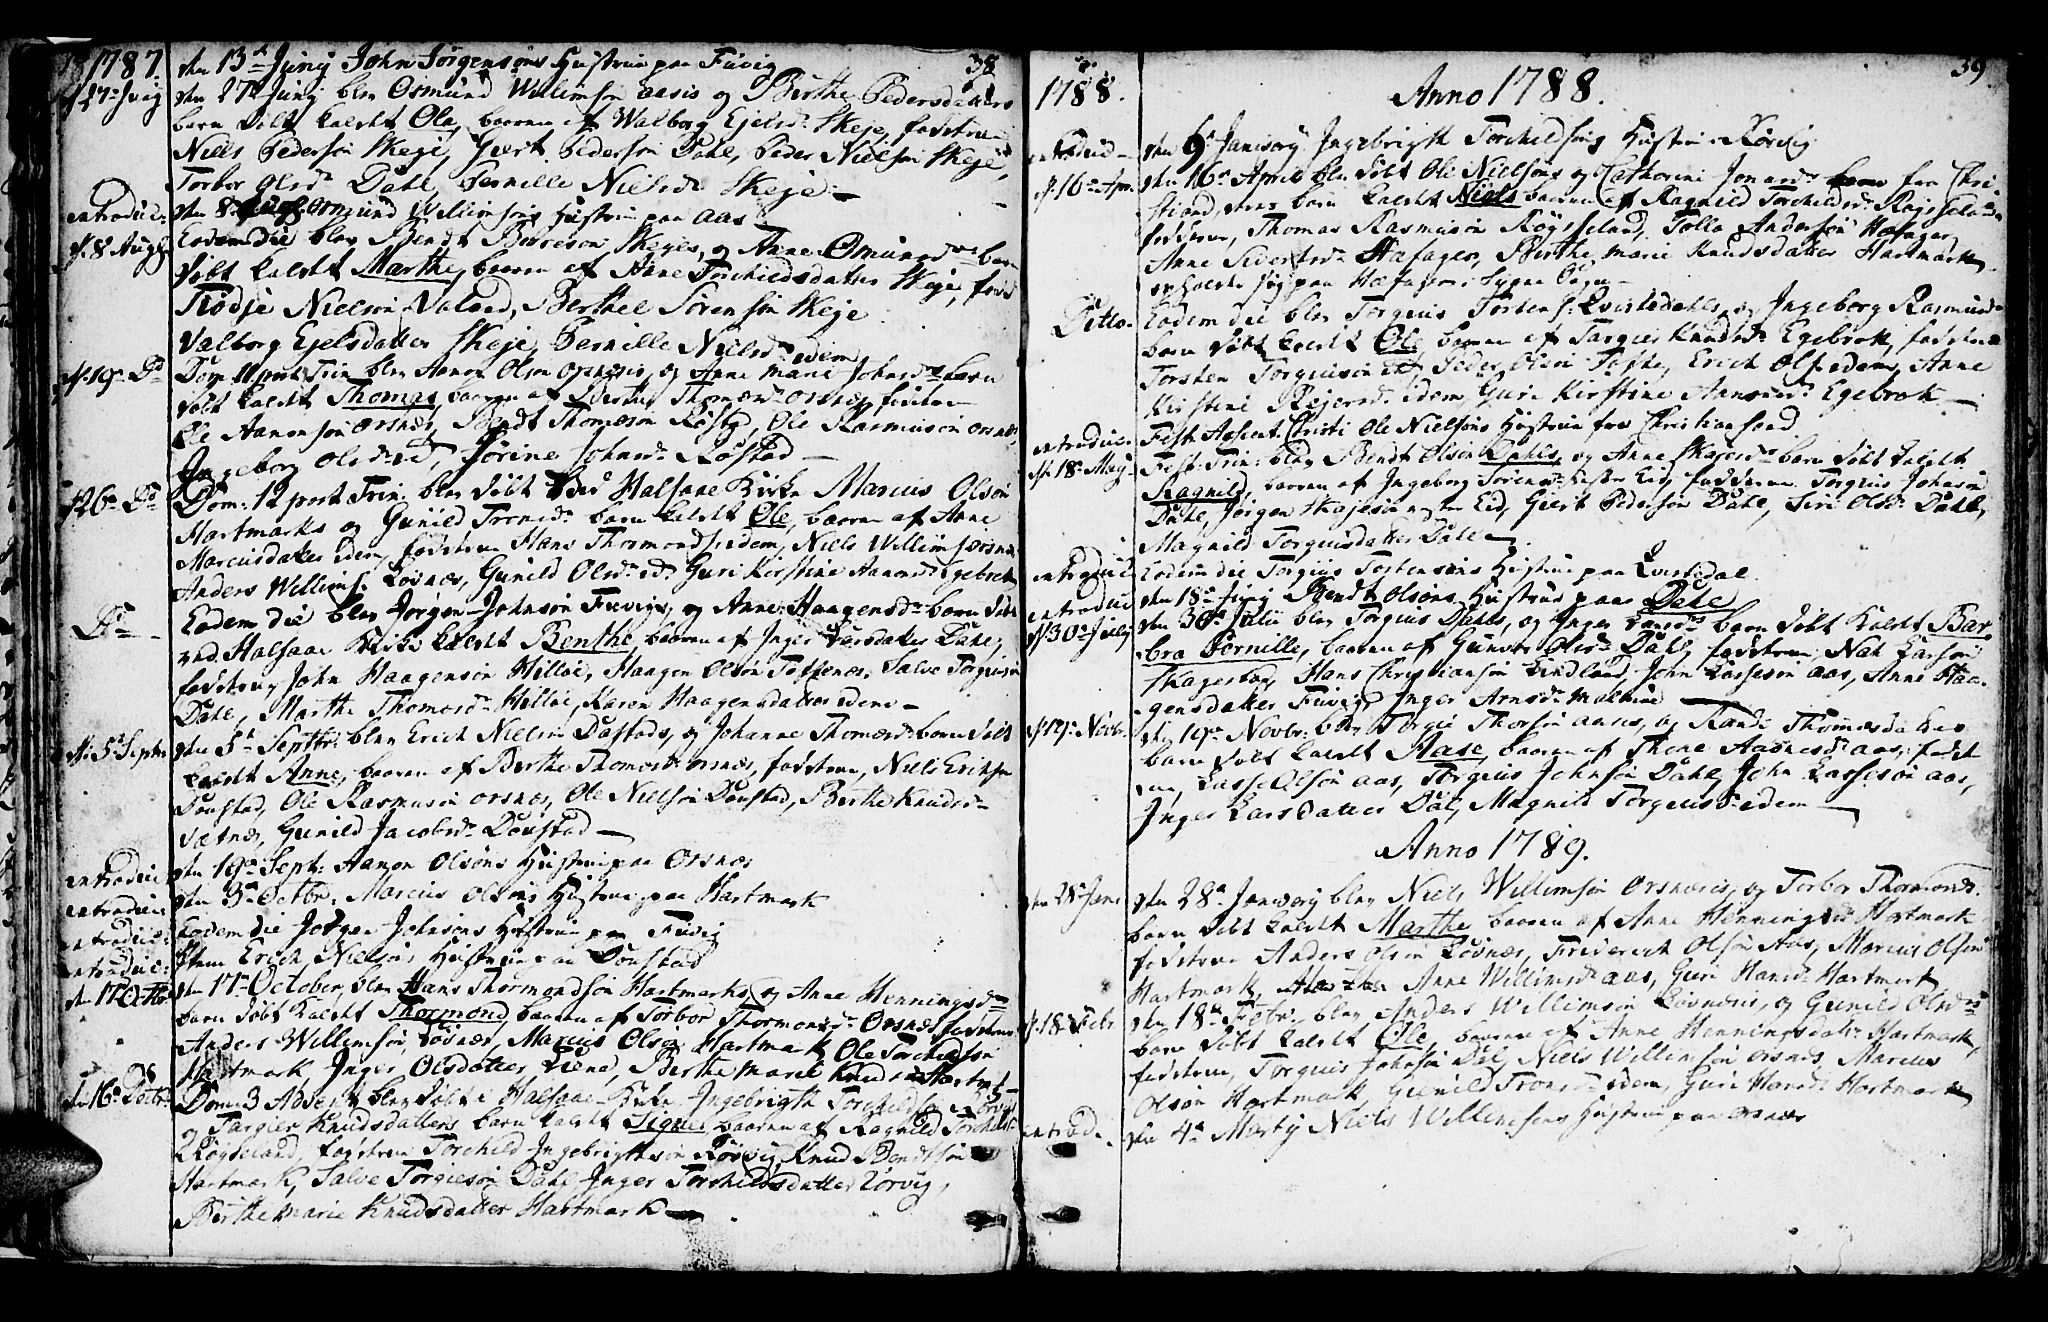 1787.
38
den 13de Junij John Jörgensöns Hustrue paa Fuvig
d. 27de Junij
den 27de Junij blev Osmund Willumsön Aasis og Berthe Pedersdatters
barn döbt kaldt Ola, baaren af Walborg Ejelsdr Skeje, fadderne
Niels Pedersön Skeje, Giert Pedersön Dahl, Peder Nielsön Skeje,
Torbor Olsdr Dahl, Pernille Nielsdr Skeje.
introduc:
den 8de Osmund Willumsöns Hustrue paa Aas
d. 8 Aug:
Eodem die blev Bendt Skeyes, og Anne Osmundsdrs barn
döbt kaldt Marthe, baaren af Anne Torchildsdatter Skeje,
Tiodje Nielsön Valand, Berthel Sörensön Skeje
Valborg Ejelsdatter Skeje, Pernille Nielsdr idem
d. 19de Do
Dom 11 post Trin blev Aanon Olsön Orsnesis, og Anne Marie Johnsdrs barn
döbt kaldt Thomas, baaren af Berthe Thomædr Orsnes,
Ole Aanonsön Orsnæs, Bendt Thomæsön Röstad, Ole Rasmusön Orsnæs,
Ingeborg Olsdr id, Sörine Johnsdr Röstad
d. 26de Do
Dom: 12 post Trin: blev döbt ved Halsaae Kirke Marcus Olsön
Hartmarks og Gunild Tronsdr barn kaldt Ole, baaren af Anne
Marcusdatter idem, fadderne Hans Thormondsön idem, Niels Willumsön Orsnæs
Anders Willums: Lövnæs, Gunild Olsdr idm Guri Kirstine Aanonsdr Egebrok
Do
Eodem die blev Jörgen Johnsön Fuvigs, og Anne Haagensdrs barn döbt
ved Halsaae Kirke kaldt Benthe, baaren af Inger Larsdatter Dahl,
fadderne John Haagensön Hilloe, Haagen Olsön Toftenes, Salve Torgiusön
Dahl, Marthe Thomædr Hilloe, Karen Haagensdatter idem
d. 5te Septbr
den 5te Septbr: blev Erich Nielsön Doustads, og Johanne Thomædrs barn döbt
kaldt Anne, baaren af Berthe Thomædr Orsnæs, fadderne, Niels Erichsön
Doustad, Ole Rasmusön Orsnæs, Ole Nielsön Doustad, Berthe Knudsdr
Sætnæs, Gunild Jacobsdr Doustad
introduc:
den 19de Septr: Aanon Olsöns Hustrue paa Orsnæs
introduc:
den 3de Octbr: Marcus Olsöns Hustrue paa Hartmark
introduc:
Eodem die Jörgen Johnsöns Hustrue paa Fuvig
introduc:
Item Erich Nielsöns Hustrue paa Doustad
den 17de Octbr
den 17de October, blev Hans Thormondsön Hartmarks, og Anne Henningsdrs
barn döbt kaldt Thormond, baaren af Torbor Thormonsdr Orsnæs fadderne
Anders Willumsön Lövnæs, Marcus Olsön Hartmark, Ole Torchildsön
Hartmark, Inger Olsdatter Liene, Berthe Marie Knudsdr Hartmark
den 16de Decbr
Dom: 3 Advent blev döbt i Halsaae Kirke Ingebrigth Torchildsön Rörvigs
og Targier Knudsdatters barn kaldt Signe, baaren af Ragnild Torchildsdr
Rögseland, fadderne Torchild Ingebrigthsön Rörvig, Knud Bendtsön
Hartmark, Salve Torgiesön Dahl, Inger Torchildsdatter Rörvig,
Berthe Marie Knudsdatter Hartmark
39
1788.
Anno 1788.
introduc
den 9de Januarij Ingebrigth Torchildsöns Hustrue Rörvig
d. 16de Apr.
den 16de April blev döbt Ole Nielsöns og Cathrine Jonædrs fra Chri-
stiand, deres barn kaldt Niels baaren af Ragnild Torchildsdr Rögseland
fadderne, Thomas Rasmusön Rögseland, Tolla Andersön Hæfager
Anne Hæfager, Berthe Marie Knudsdatter Hartmark
opholdte sig paa Hæfager i Sogne Sogn
Ditto.
Eodem die blev Torgius Torstens: Qvisledahls, og Ingeborg Rasmusdrs
barn döbt kaldt Ole baaren af Targier Knudsdr Egebrok, fadderne
Torsten Torgiusön id, Peder Olsön Tofte, Erich Ols: idem, Anne
Kirstine Rejersdr idem, Guri Kirstine Aanonsdr Egebrok
introduc.
Fest: Ascent. Christi Ole Nielsöns Hustrue fra Christiansand
d. 18de Maj
Fest: Trin: blev Bendt Olsön Dahls, og Anne Skajesdrs barn döbt kaldt
Ragnild, baaren af Ingeborg Eid, fadderne Torgius Johnsön
Dahl, Jörgen Skajesön Eid, Giert Pedersön Dahl, Siri Olsdr Dahl,
Magnild Torgiusdatter Dahl
introduc
Eodem die Torgius Torstensöns Hustrue paa Qvisledal
introduc
den 18de Junij Bendt Olsöns Hustrue paa Dahl
d. 30de Julij
den 30de Julii blev Torgius Dahls, og Inger Larsdrs barn döbt kaldt Bar-
bra Pernille, baaren af Gunvor Olsdr Dahl, fadderne,
Skagestad, Hans Christiansön Lindland, John Lassesön Aas, Anne Haa-
gensdatter Fuvig, Inger Arnsdr
d. 19de Novbr.
den 19de Novbr: blev Torgie Thorsön Aasis, og Randi Thomæsdatters
barn döbt kaldt Aase, baaren af Thone Aasnesdr Aas, fadde-
rne, Lasse Olsön Aas, Torgius Johnsön Dahl, John Lassesön Aas,
Inger Larsdatter Dal, Magnild Torgiusdr idem
Anno 1789.
den 28de Jan:
den 28de Januarij blev Niels Willumsön Orsnæsis, og Torbor Thormonsdr
barn döbt kaldt Marthe, baaren af Anne Henningsdr Hartmark
fadderne Anders Olsön Lövnæs, Friderich Olsön Aas, Marcus Olsön
Hartmark, Anne Willumsdr Aas, Guri Hansdr Hartmark
d. 18de Febr.
den 18de Febr: blev Anders Willumsön Lövnæsis, og Gunild Olsdrs
barn döbt kaldt Ole, baaren af Anne Henningsdatter Hartmark,
fadderne, Torgius Johnsön Dal, Niels Willumsön Orsnæs, Marcus
Olsön Hartmark, Gunild Tronsdr idem, Guri Hansdr Hartmark
introd.
den 4de Martij Niels Willumsöns Hustrue paa Orsnæs